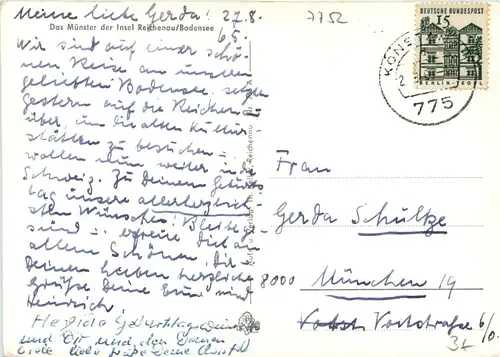 Meine liebe Gerda! 27.8.
65.
7752
Das Münster der Insel Reichenau/Bodensee
Wir sind auf einer schö-
nen Reise an unseren
geliebten Bodensee, setzten
gestern auf die Reichenau
über, um die alten Kultur-
stätten zu besuchen u.
wollen nun weiter in die
Schweiz. Zu Deinem Geburts-
tag unsere allerherzlich-
sten Wünsche! Bleibe ge-
sund u. erfreue Dich an
allem Schönen! Dir u.
Deinen Lieben herzliche
Grüße Deine Erna und
Heinrich
und Dir und den Deinen
liebe Grüße Deine
DEUTSCHE BUNDESPOST
15
BERLIN-TEGEL
KONSTANZ
775
Frau
Gerda Schultze
8000 München 19
Voitstraße 6/0